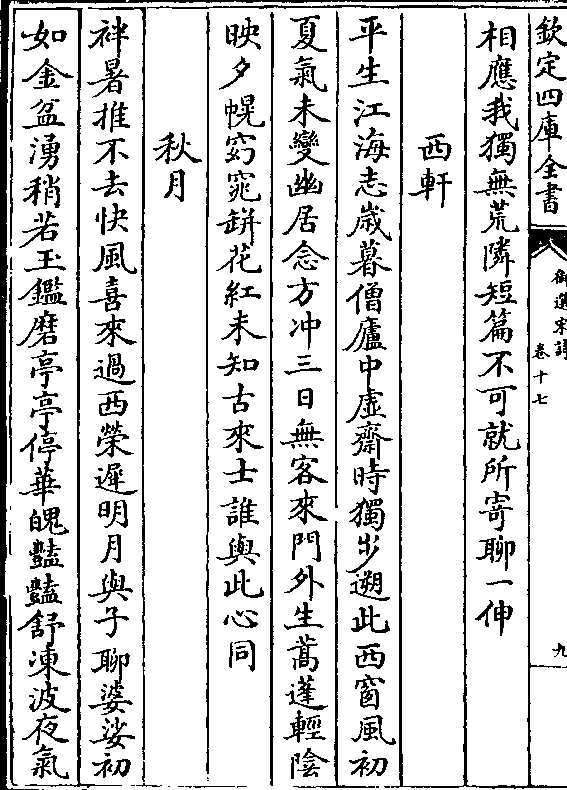 欽定四庫全書
御選宋詩
卷十七
九
相應我獨無荒隣短篇不可就所寄聊一伸
西軒
平生江海志歲暮僧廬中虛齋時獨步遡此西窗風初
夏氣未變幽居念方冲三日無客來門外生蒿蓬輕陰
映夕幌窈窕缾花紅未知古來士誰與此心同
秋月
袢暑推不去快風喜來過西榮遲明月與子聊婆娑初
如金盆湧稍若玉鑑磨亭亭停華魄豔豔舒凍波夜氣